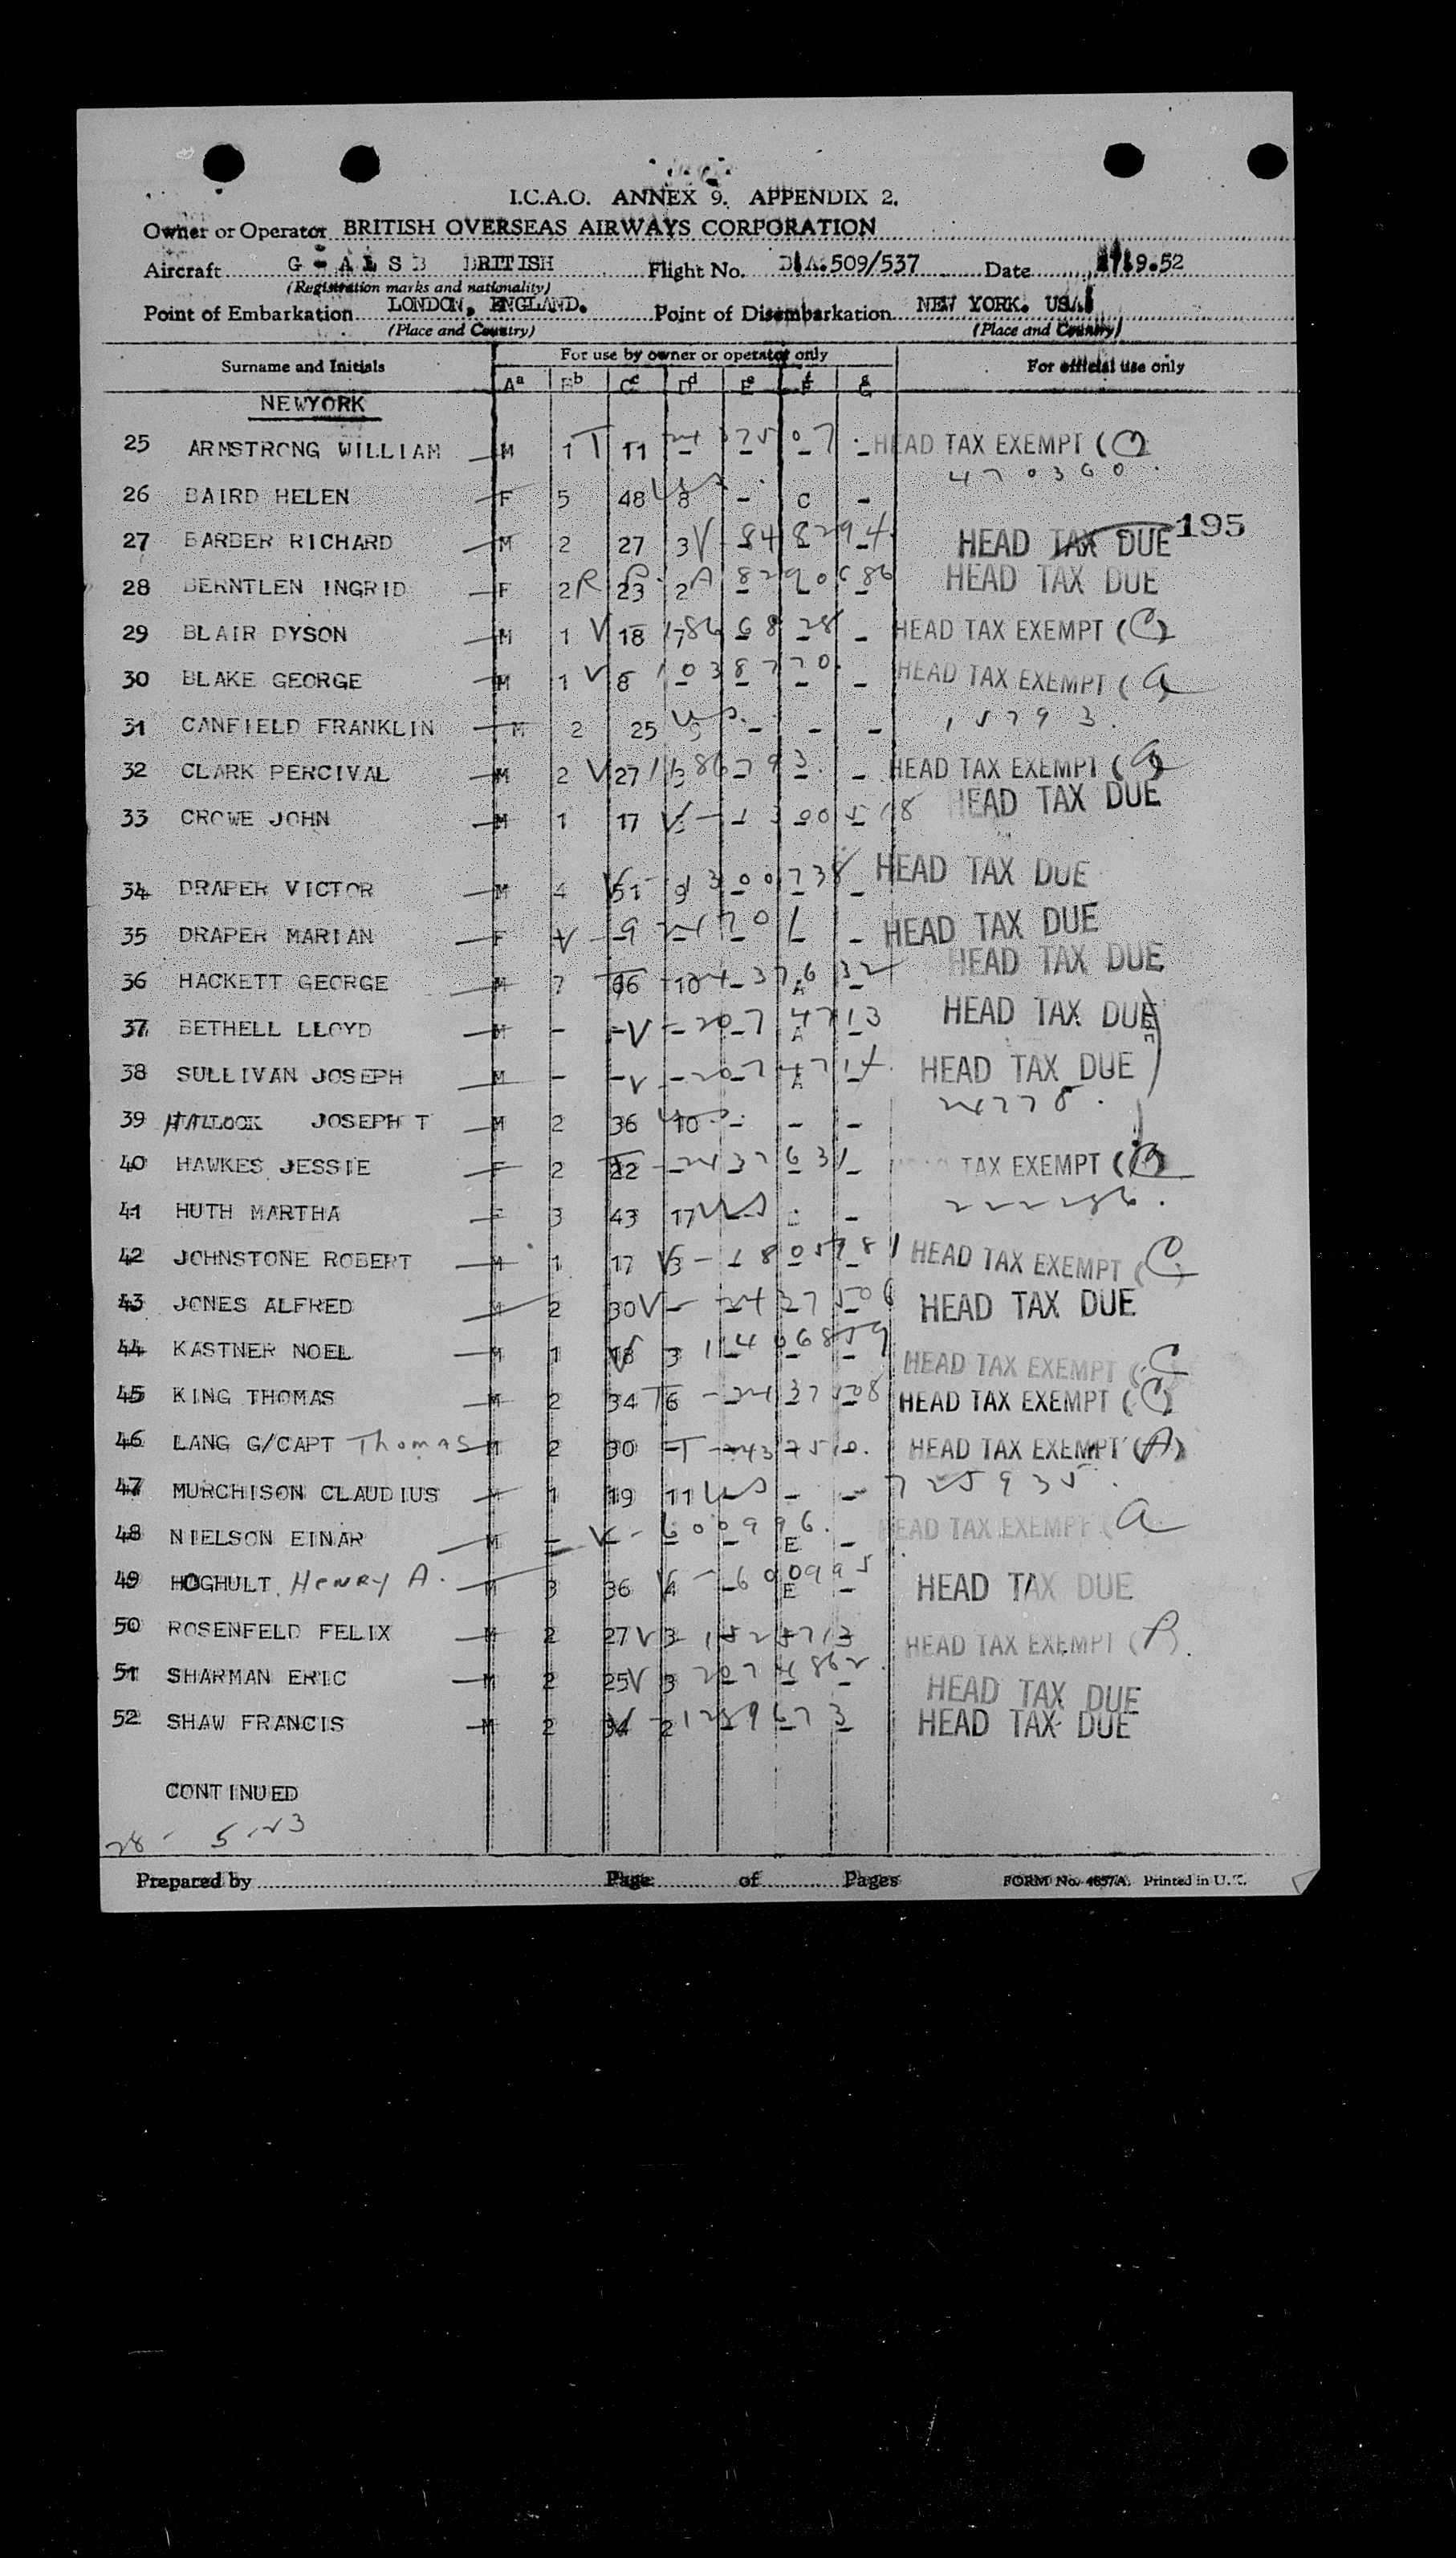 I.C.A.O. ANNEX 9. APPENDIX 2.
Owner or Operator BRITISH OVERSEAS AIRWAYS CORPORATION
Aircraft G - A L S B BRITISH Flight No. 509/537 Date 9.52
(Registration marks and nationality)
Point of Embarkation LONDON, ENGLAND. Point of Disembarkation NEW YORK. USA
(Place and Country) (Place and Country)
Surname and Initials For use by owner or operator only For official use only
A a B b C c D d E e F f G g
NEWYORK
25 ARMSTRONG WILLIAM M 1 T 11 - - - - HEAD TAX EXEMPT (C)
470360.
26 BAIRD HELEN F 5 48 8 - C -
195
27 BARBER RICHARD M 2 27 3 V - 848294 HEAD TAX DUE
28 BERNTLEN INGRID F 2 23 2 HEAD TAX DUE
29 BLAIR DYSON M 1 V 18 7 - - - HEAD TAX EXEMPT (C)
30 BLAKE GEORGE M 1 V 8 1038770 HEAD TAX EXEMPT (a
15793.
31 CANFIELD FRANKLIN M 2 25 - - -
32 CLARK PERCIVAL M 2 V 27 3 - - - HEAD TAX EXEMPT (a)
33 CROWE JOHN M 1 17 HEAD TAX DUE
34 DRAPER VICTOR M 4 51 9 1300738 HEAD TAX DUE
35 DRAPER MARIAN F V - 924701 - HEAD TAX DUE
36 HACKETT GEORGE M 7 10 2437632 A HEAD TAX DUE
37 BETHELL LLOYD M - - V - 2074713 A HEAD TAX DUE
38 SULLIVAN JOSEPH M - - V - 2074714 A HEAD TAX DUE
24778.
39 HALLOCK JOSEPH T M 2 36 10 - - -
40 HAWKES JESSIE F 2 22 - 2437631 TAX EXEMPT (
222286.
41 HUTH MARTHA F 3 43 17 US -
42 JOHNSTONE ROBERT M 1 17 V 3 - 1805781 HEAD TAX EXEMPT (C)
43 JONES ALFRED M 2 30 V - 2437506 HEAD TAX DUE
44 KASTNER NOEL M 1 18 3 1406859 HEAD TAX EXEMPT (C
45 KING THOMAS M 2 34 T 6 - 2437508 HEAD TAX EXEMPT (C)
46 LANG G/CAPT Thomas M 2 30 T - 2437510. HEAD TAX EXEMPT (A)
47 MURCHISON CLAUDIUS M 1 19 11 US - - 725935.
48 NIELSON EINAR M - V - 600996. E - HEAD TAX EXEMPT (a
49 HOGHULT Henry A. M 3 36 4 - 600995 E - HEAD TAX DUE
50 ROSENFELD FELIX M 2 27 V 3 HEAD TAX EXEMPT (P).
51 SHARMAN ERIC M 2 25 V 3 2074862. HEAD TAX DUE
52 SHAW FRANCIS M 2 34 2 1289673 HEAD TAX DUE
CONTINUED
28 - 5-23
Prepared by Page of Pages FORM No. 4857A. Printed in U.K.